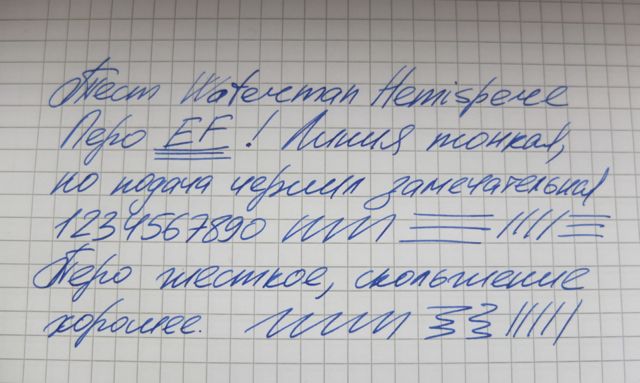 Тест Waterman Hemispere
Перо EF! Линия тонкая,
но подача чернил замечательная
1234567890
Перо жесткое, скольжение
хорошее.